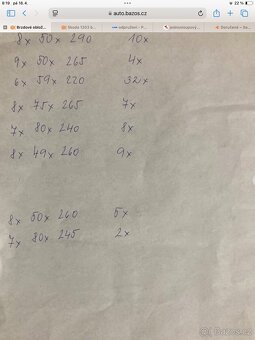 8:19 pá 10. 4.
auto.bazos.cz
22 %
8x 50x 290 10x
9x 50x 265 4x
6x 59x 220 32x
8x 75x 265 7x
7x 80x 240 8x
8x 49x 260 9x
8x 50x 260 5x
7x 80x 245 2x
Bazos.cz